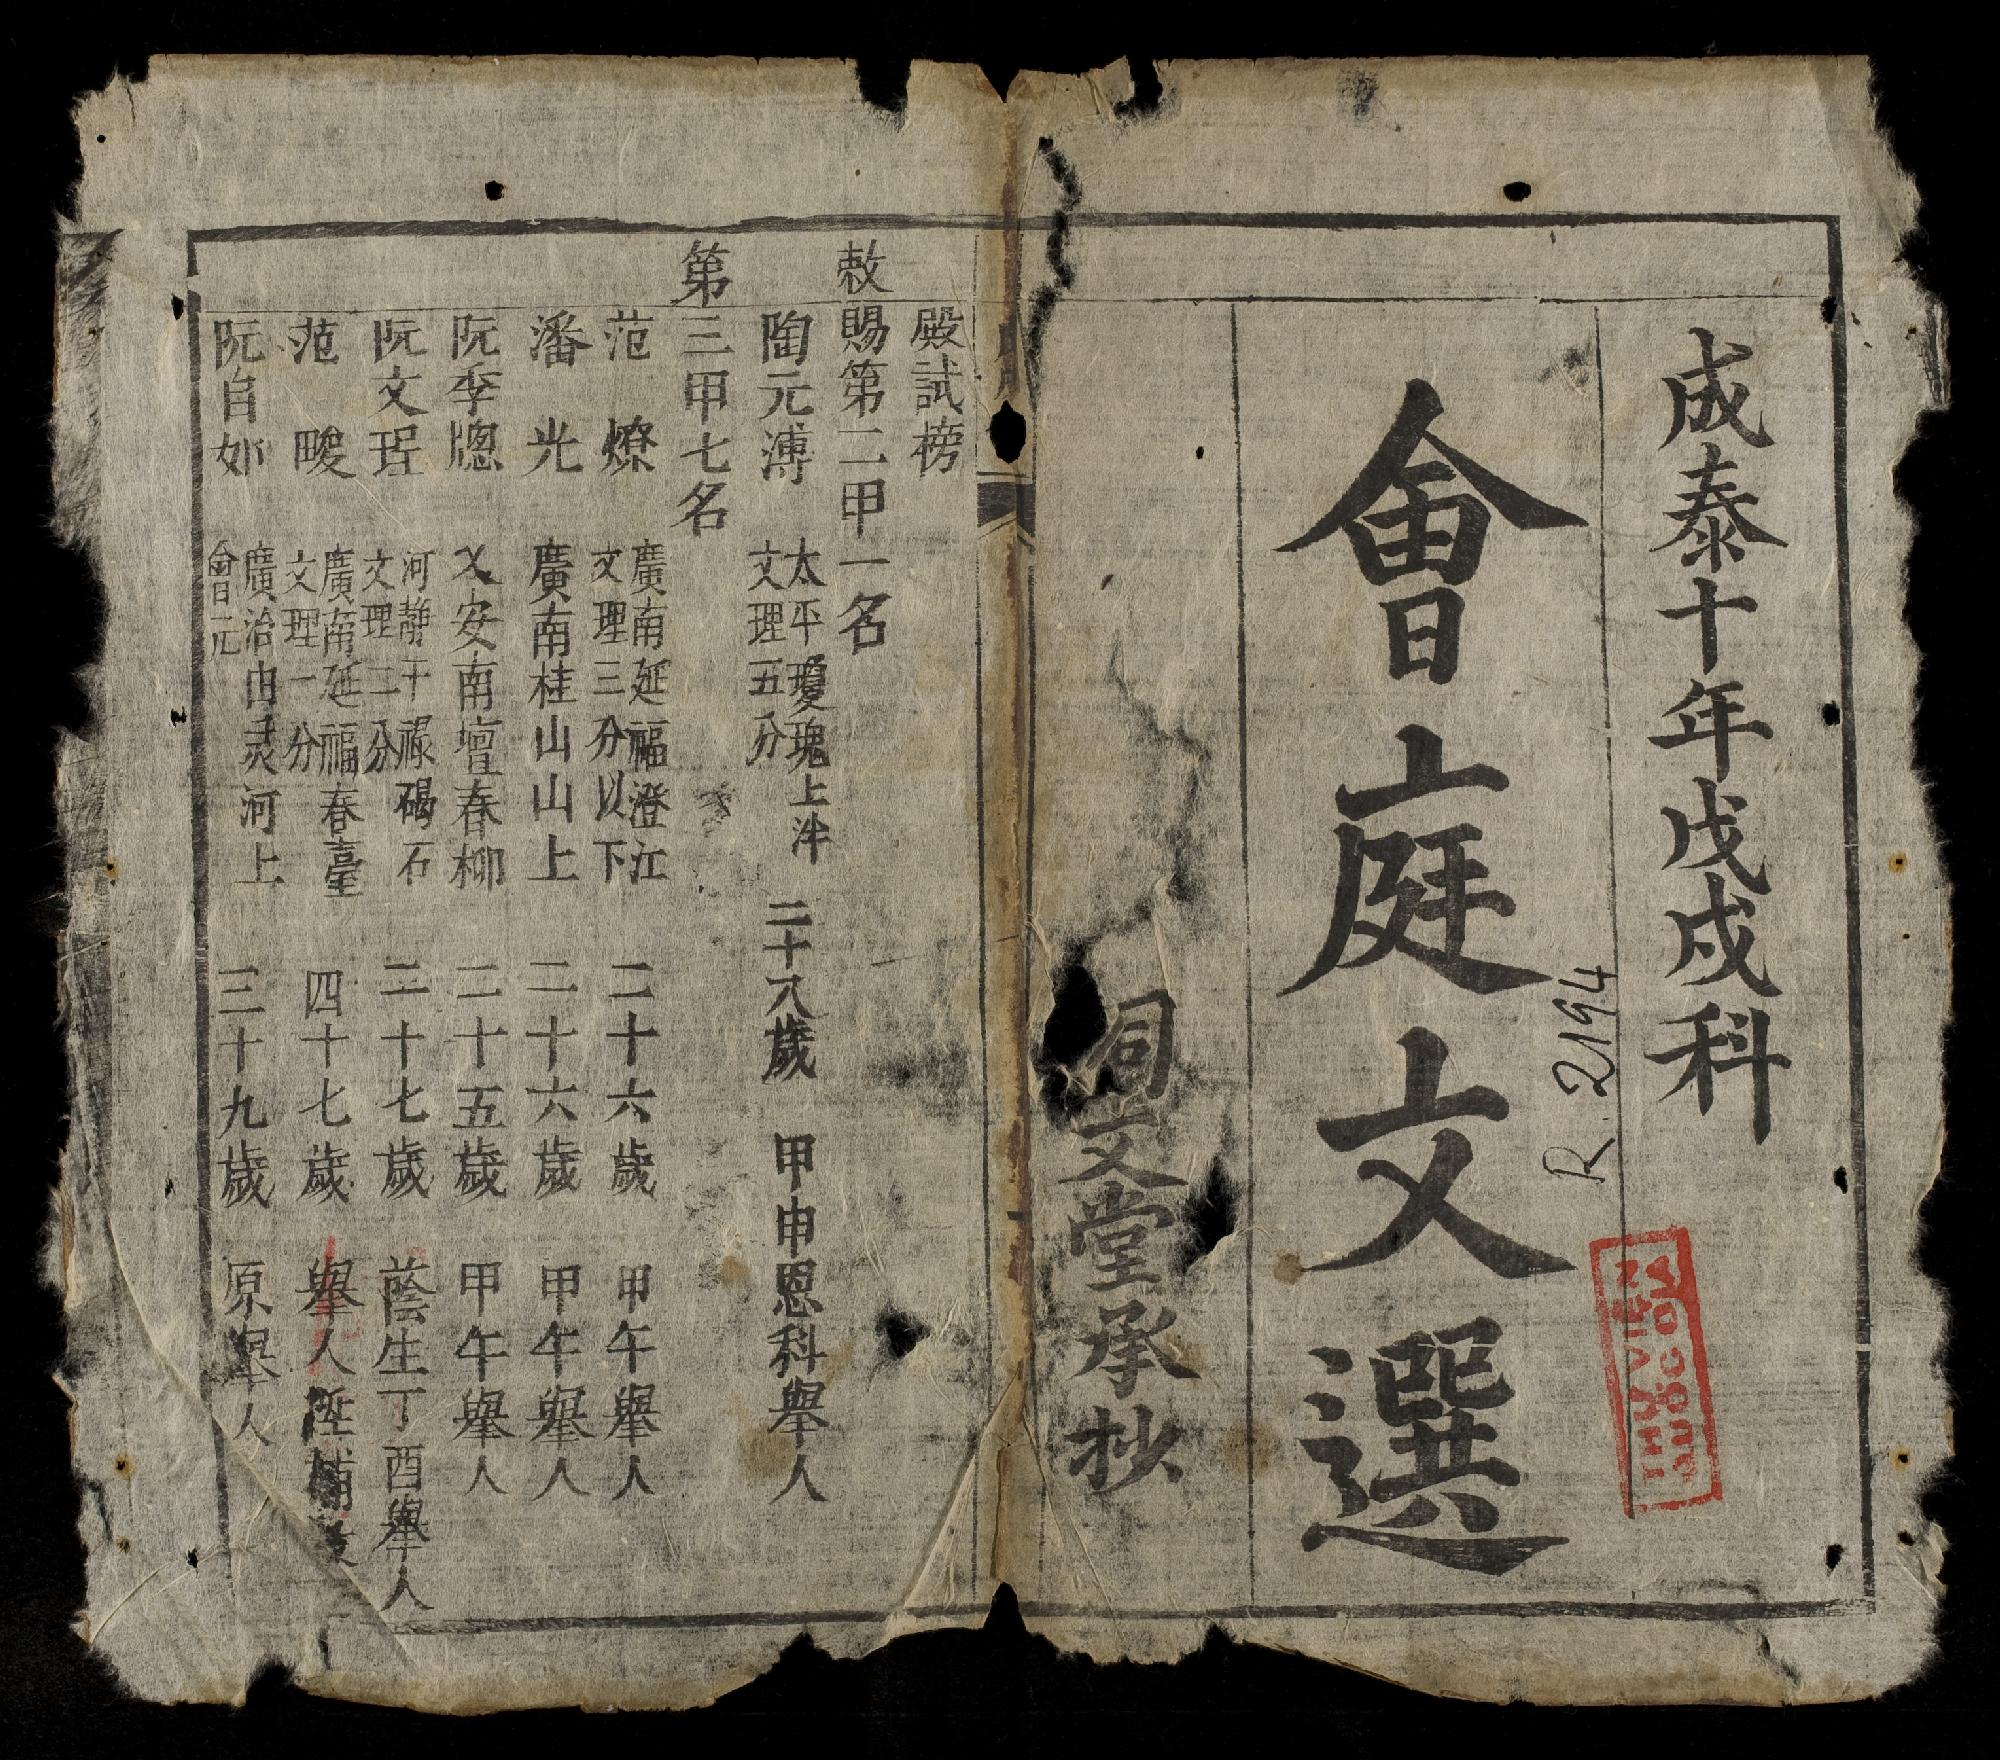 成泰十年戊戌科
會庭文選
R. 2194
THƯ VIỆN
QUỐC GIA
同文堂承抄
殿試榜
敕賜第二甲一名
陶元溥 太平瓊瑰上泮 文理五分 二十八歲 甲申恩科舉人
第三甲七名
范燎 廣南延福澄江 文理三分以下 二十六歲 甲午舉人
潘光 廣南桂山山上 二十六歲 甲午舉人
阮季 乂安南壇春柳 二十五歲 甲午舉人
阮文珵 河靜干祿碣石 文理二分 二十七歲 蔭生丁酉舉人
范畯 廣南延福春臺 文理一分 四十七歲 舉人
阮自如 廣治由灵河上 會元 三十九歲 原舉人